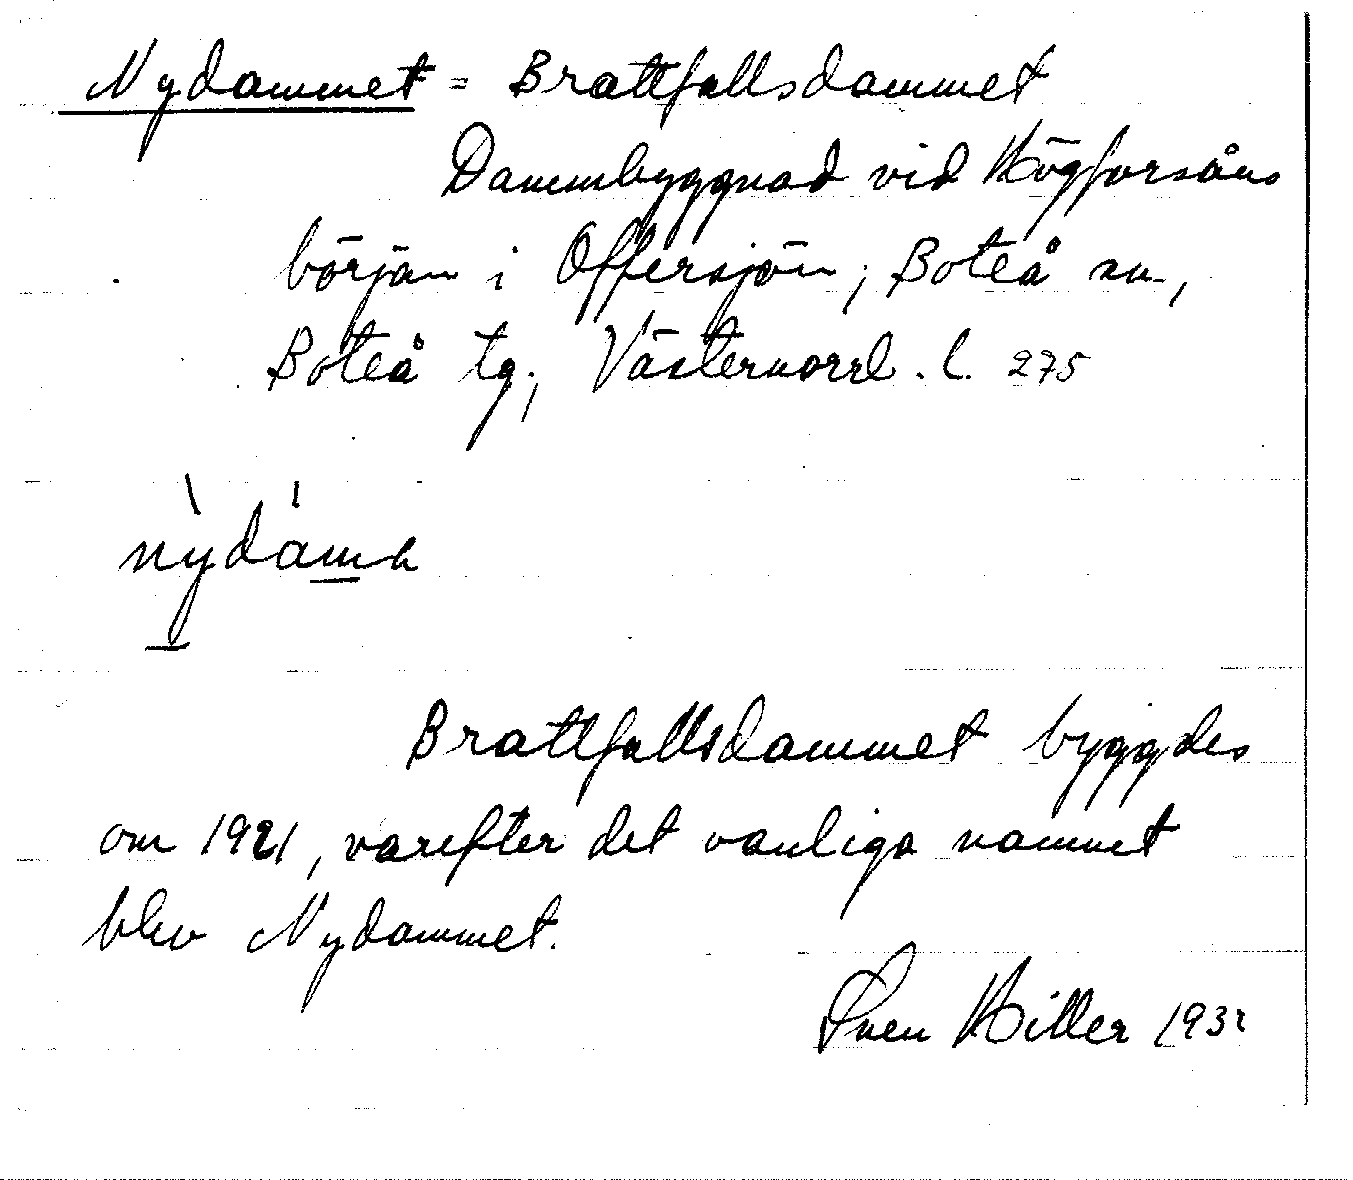 Nydammet = Brattfallsdammet
Dammbyggnad vid Högforsåns
början i Offersjön, Boteå sn,
Boteå tg, Västernorrl. l. 275
nỳdám
Brattfallsdammet byggdes
om 1921, varefter det vanliga namnet
blev Nydammet.
Sven Hiller 1932